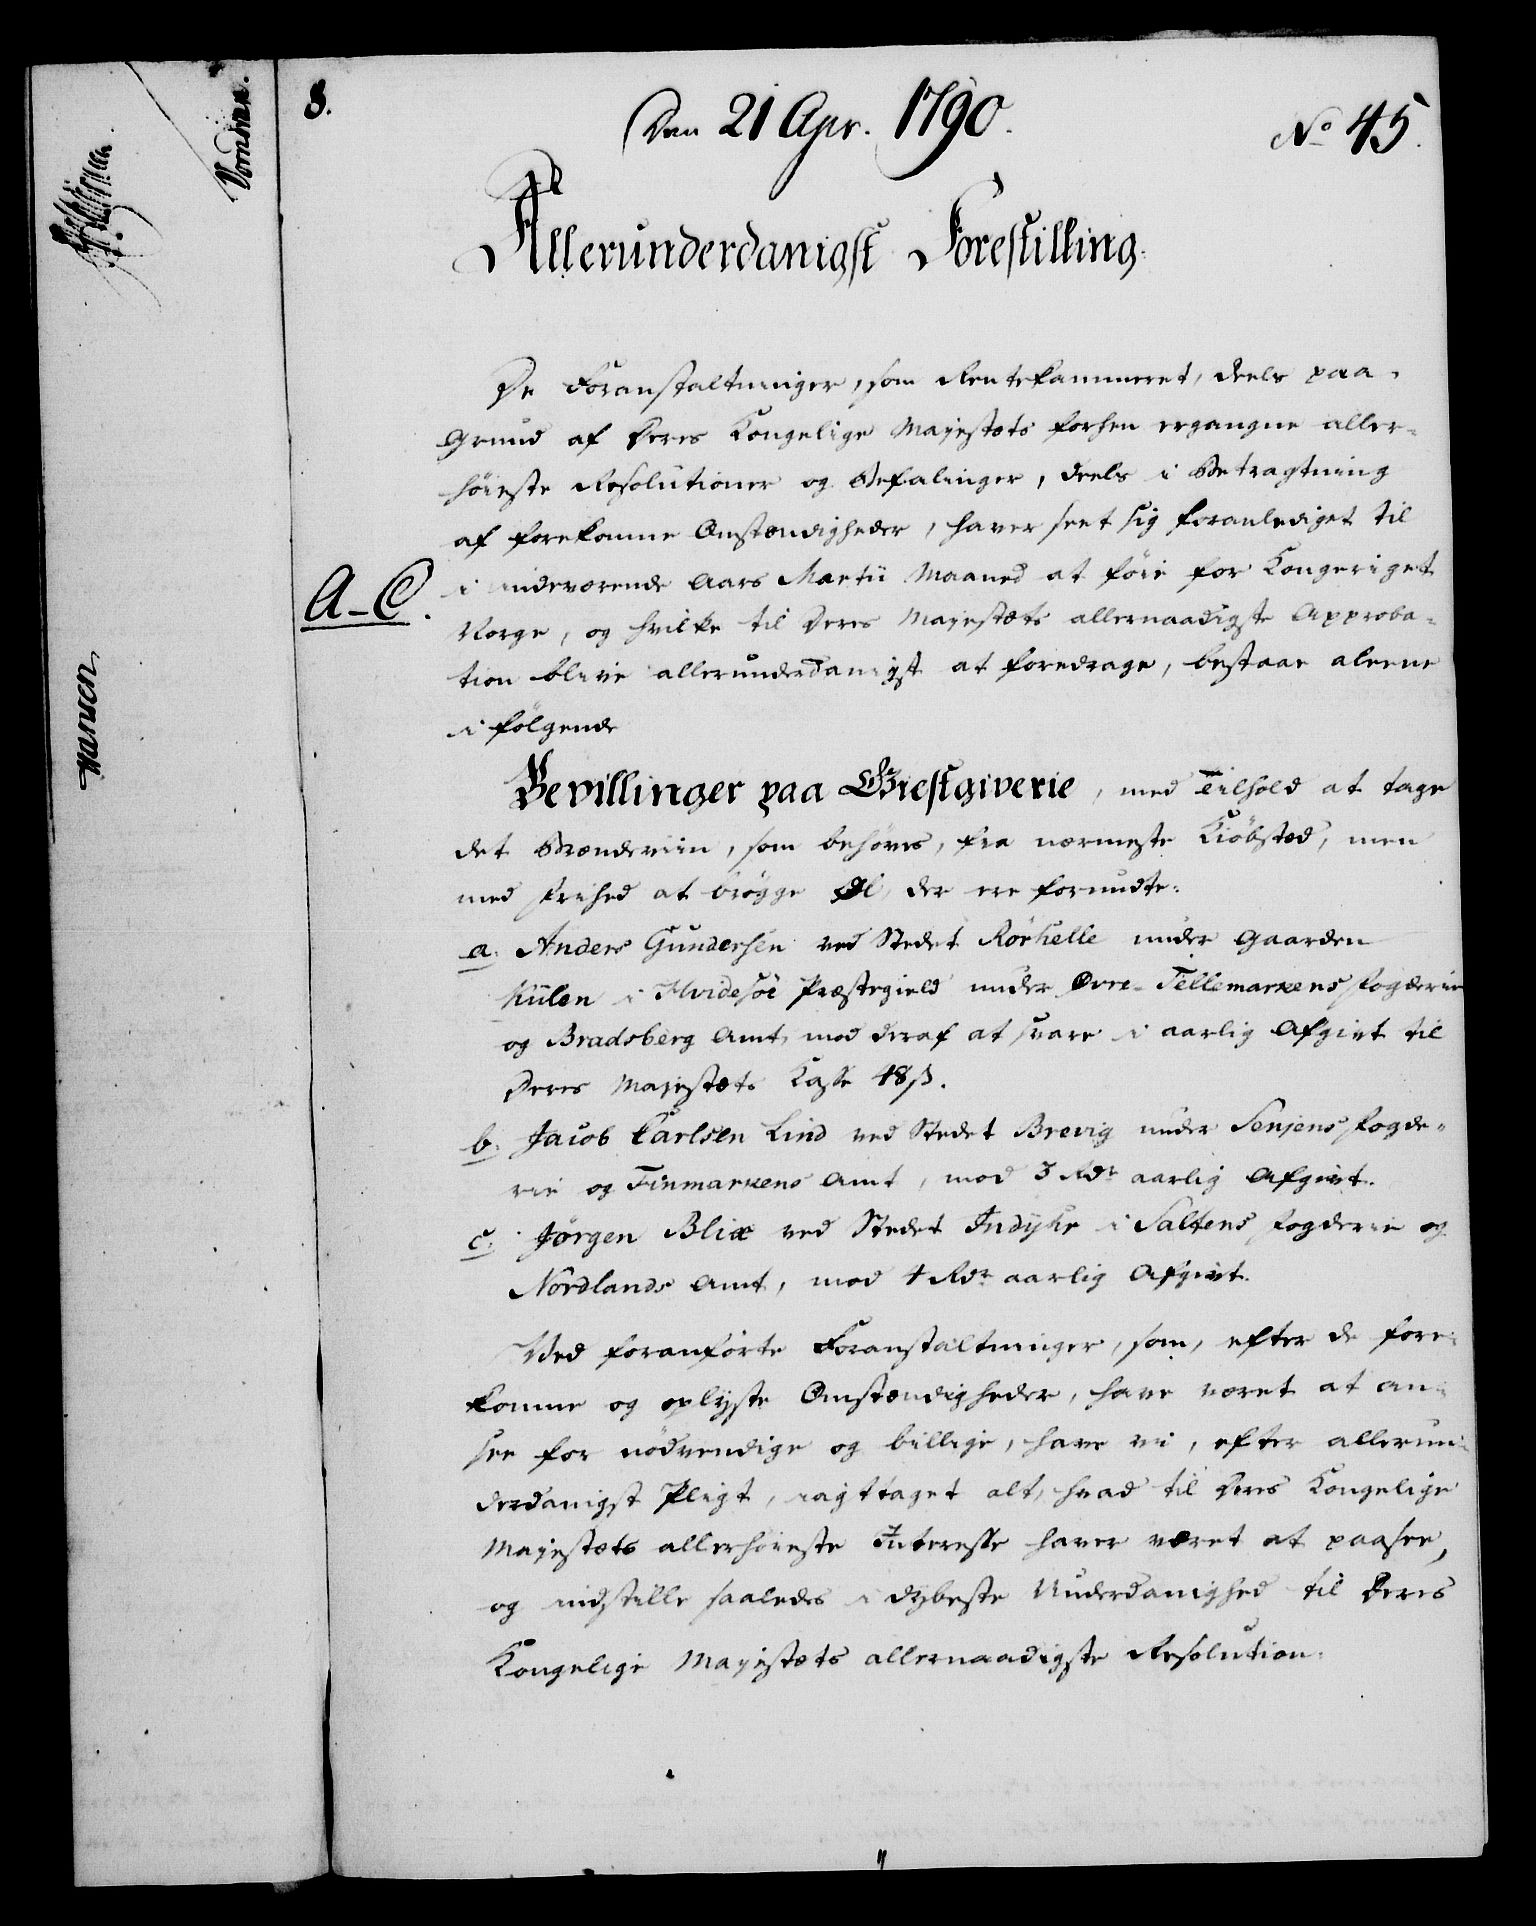 8.
Den 21 Apr. 1790.
No 45.
Allerunderdanigst Forestilling.
De Foranstaltninger, som Rentekammeret, deels paa
Grund af Deres Kongelige Majestæts forhen ergangne aller-
höieste Resolutioner og Befalinger, deels i Betragtning
af forekomne Omstændigheder, haver seet sig foranlediget til
A-C.
i indeværende Aars Martii Maaned at föie for Kongeriget
Norge, og hvilke til Deres Majestæts allernaadigste Approba-
tion blive allerunderdanigst at foredrage, bestaae aleene
i fölgende
Bevillinger paa Giestgiverie, med Tilhold at tage
det Brændeviin, som behöves, fra nærmeste Kiöbstæd, men
med Frihed at brögge Øl, der ere forundte:
a. Anders Gundersen ved Stedet Rörhelle under Gaarden
Kiilen i Hvidesöe Præstegield under Övre-Tellemarkens Fogderie
og Bradsberg Amt, mod deraf at svare i aarlig Afgivt til
Deres Majestæts Kasse 48 ß.
b. Jacob Carlsen Lind ved Stedet Brevig under Senjens Fogde-
rie og Finmarkens Amt, mod 3 Rdr aarlig Afgivt.
c. Jörgen Blix ved Stedet Indyhr i Saltens Fogderie og
Nordlands Amt, mod 4 Rdr aarlig Afgivt.
Ved foranförte Foranstaltninger, som, efter de fore-
komne og oplyste Omstændigheder, have været at an-
see for nödvendige og billige, have vi, efter allerun-
derdanigst Pligt, iagttaget alt, hvad til Deres Kongelige
Majestæts allerhöieste Interesse haver været at paasee,
og indstille saaledes i dybeste Underdanighed til Deres
Kongelige Majestæts allernaadigste Resolution.
Hansen